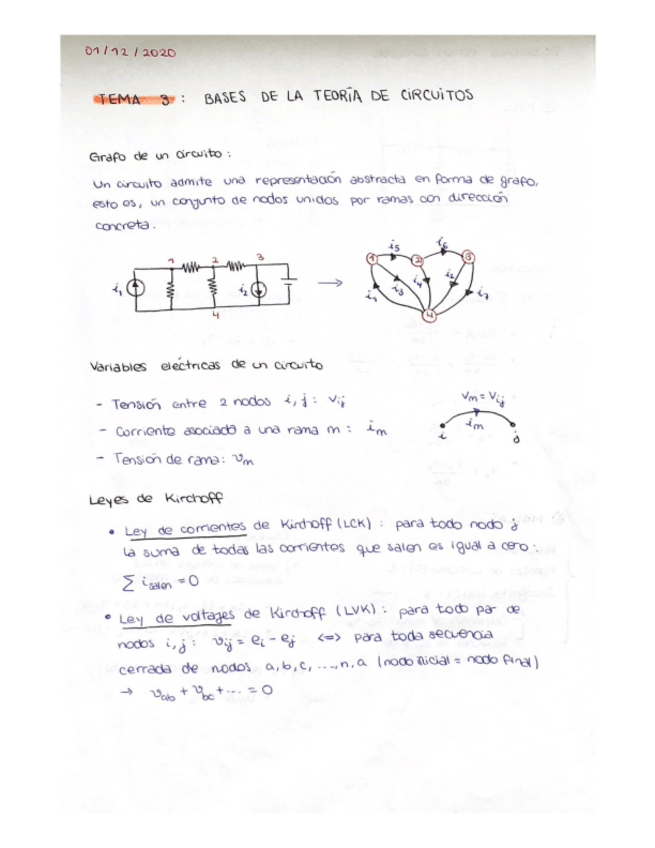 01/12/2020
TEMA 3: BASES DE LA TEORÍA DE CIRCUITOS
Grafo de un circuito:
Un circuito admite una representación abstracta en forma de grafo,
esto es, un conjunto de nodos unidos por ramas con dirección
concreta.
1 2 3
i₁ i₂
4
→
i₅ i₆
1 2 3
i₁ i₃ i₄ i₂ i₇
4
Variables eléctricas de un circuito
- Tensión entre 2 nodos i, j: vᵢⱼ
- Corriente asociada a una rama m: iₘ
- Tensión de rama: vₘ
vₘ = vᵢⱼ
iₘ
i j
Leyes de Kirchoff
• Ley de corrientes de Kirchoff (LCK): para todo nodo j
la suma de todas las corrientes que salen es igual a cero:
∑ i salen = 0
• Ley de voltages de Kirchoff (LVK): para todo par de
nodos i, j: vᵢⱼ = eᵢ - eⱼ <=> para toda secuencia
cerrada de nodos a, b, c, ..., n, a (nodo inicial = nodo final)
→ v_ab + v_bc + ... = 0